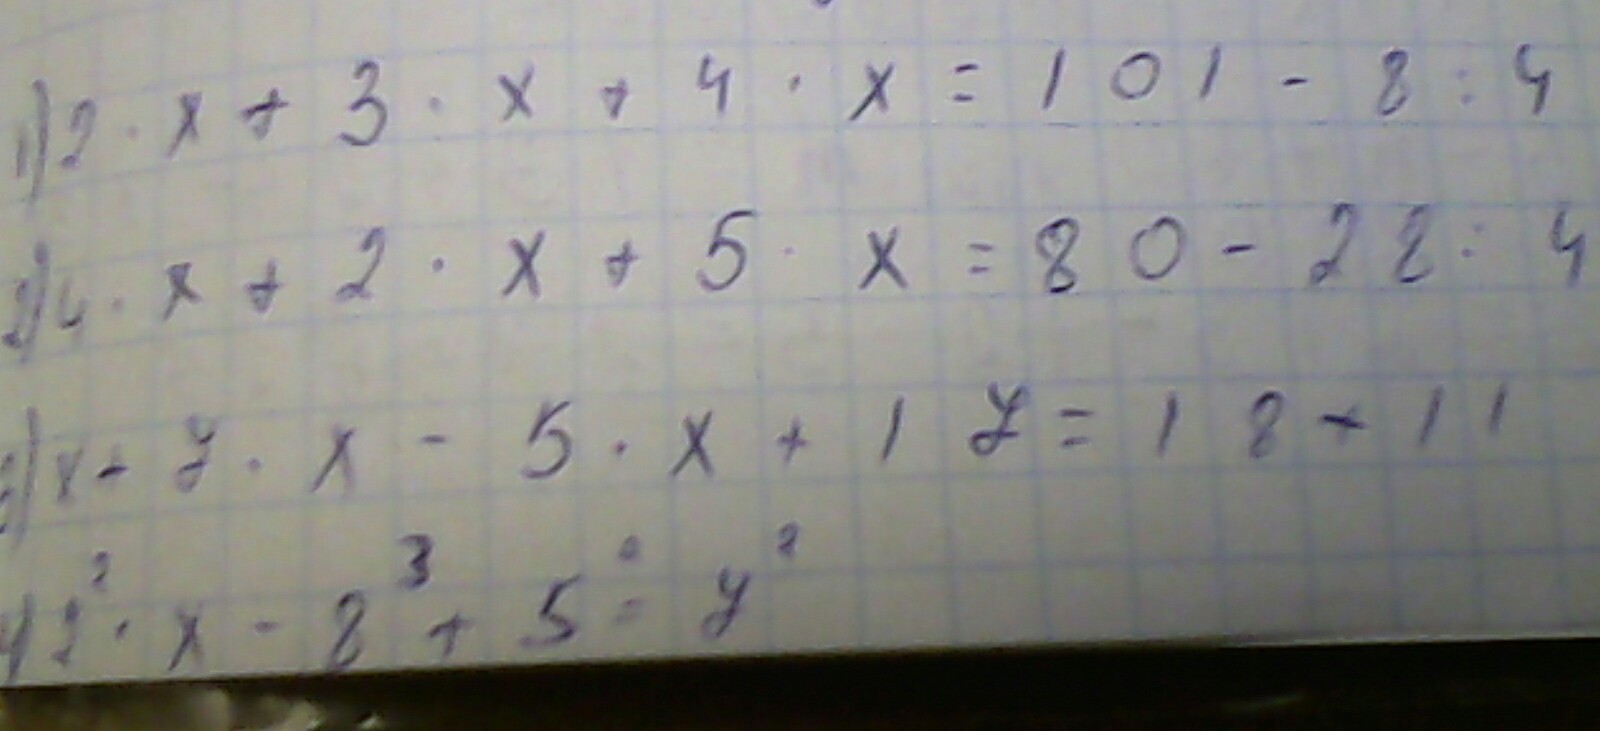 1) 2 · x + 3 · x + 4 · x = 101 - 8 : 4
2) 4 · x + 2 · x + 5 · x = 80 - 28 : 4
3) x + 7 · x - 5 · x + 17 = 18 + 11
4) 2² · x - 8³ + 5⁰ = 7²